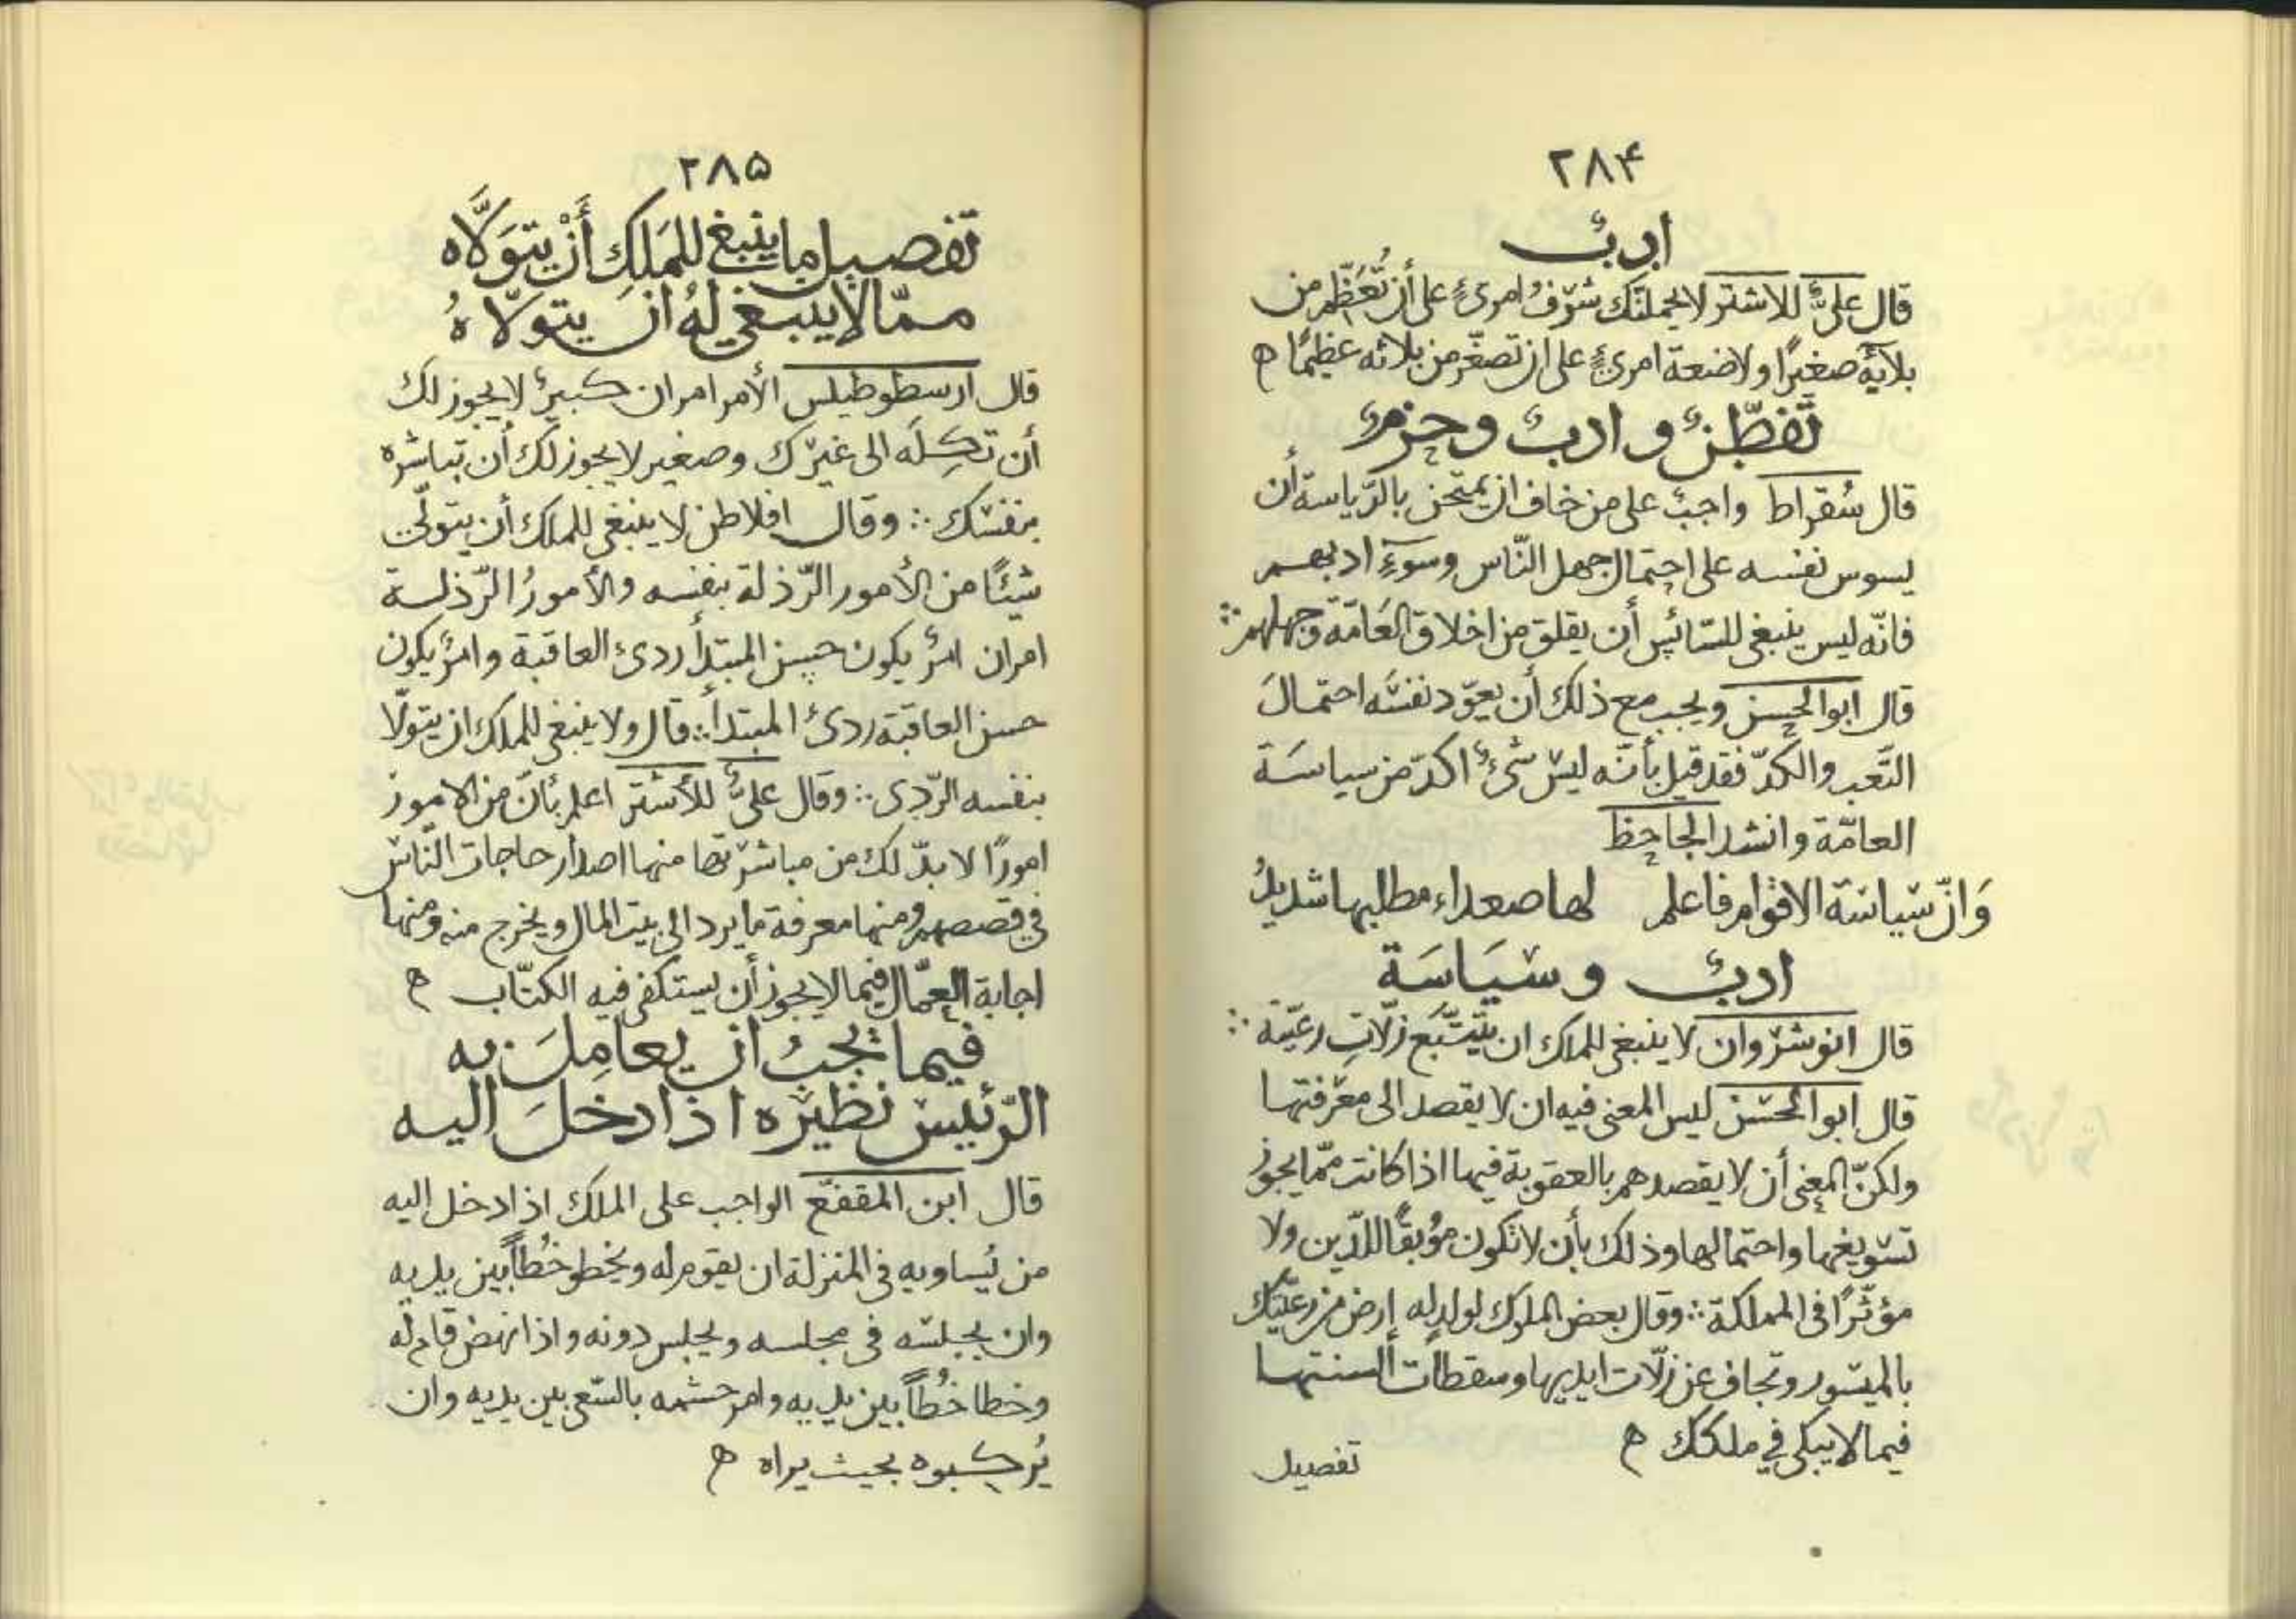 ۲۸۴
ادبٌ
قال علىٌّ للاشتر لا يحملنّك شرَفُ امرىءٍ على أن تُعَظّم من
بلآئِه صغيرًا ولا ضعة امرىءٍ على ان تصغّر من بلائه عظيمًا ه
تَفَطّنٌ و ادبٌ و حزمٌ
قال سُقراط واجبٌ على من خاف ان يمتحن بالرّياسة أن
يسوس نفسه على احتمال جهل النّاس وسوءِ ادبهم
فانّه ليس ينبغى للسّائس أن يقلق من اخلاق العَامّة وجهلهم ⁘
قال ابوالحسن ويجب مع ذلك أن يعوّد نفسَه احتمالَ
التّعب والكدّ فقد قيل بأنّه ليس شىءٌ اكدّ من سياسَة
العامّة وانشد الجاحظ
وَانّ سياسَة الاقوام فاعلم لها صعداء مطلبها شديدُ
ادبٌ وسيَاسَة
قال انوشروان لا ينبغى للملك ان يتتبّع زلّاتِ رعيّته ⁘
قال ابوالحسن ليس المعنى فيه ان لا يقصد الى معرفتها
ولكنّ المعنى أن لا يقصدهم بالعقوبة فيها اذا كانت ممّا يجوز
تسويغها واحتمالها وذلك بأن لا تكون مُوبقًا للدّين ولا
مؤثّرًا فى المملكة ⁘ وقال بعض الملوك لولده إرض من رعيّتك
بالميسور وتجاف عن زلّات ايديها وسقطات ألسنتها
فيما لا يبكى في ملكك ه
تفصيل
۲۸۵
تفصيل ما ينبغى للمَلِكِ أَنْ يتوَلَّاه
ممّا لا ينبغي لهُ انَ يتولّاهُ
قال ارسطوطيلس الأمر امران كبيرٌ لا يجوز لك
أن تكِلَه الى غيرك وصغير لا يجوز لك أن تباشره
بنفسك ⁘ وقال افلاطن لا ينبغى للملك أن يتولّى
شيئًا من الأمور الرّذلة بنفسه والأمورُ الرّذلة
امران امرٌ يكون حسن المبتدأ ردىء العاقبة وامرٌ يكون
حسن العاقبة ردىء المبتدأ ⁘ قال ولا ينبغى للملك ان يتولّا
بنفسه الرّدى ⁘ وقال علىٌّ للأشتر اعلم بأنّ من الامور
امورًا لا بدّ لك من مباشرتها منها اصدار حاجات النّاس
في قصصهم ومنها معرفة ما يرد الى بيت المال ويخرج منه ومنها
اجابة العمّال فيما لا يجوز أن يستكفى فيه الكتّاب ه
فيما يجبُ ان يعامِلَ به
الرّئيس نظيره اذا دخلَ اليه
قال ابن المقفّع الواجب على الملك اذا دخل اليه
من يُساويه فى المنزلة ان يقوم له ويخطو خُطاً بين يديه
وان يجلسه فى مجلسه ويجلس دونه واذا نهض قام له
وخطا خُطاً بين يديه وامر حشمه بالسّعى بين يديه وان
يُركبوه بحيث يراه ه